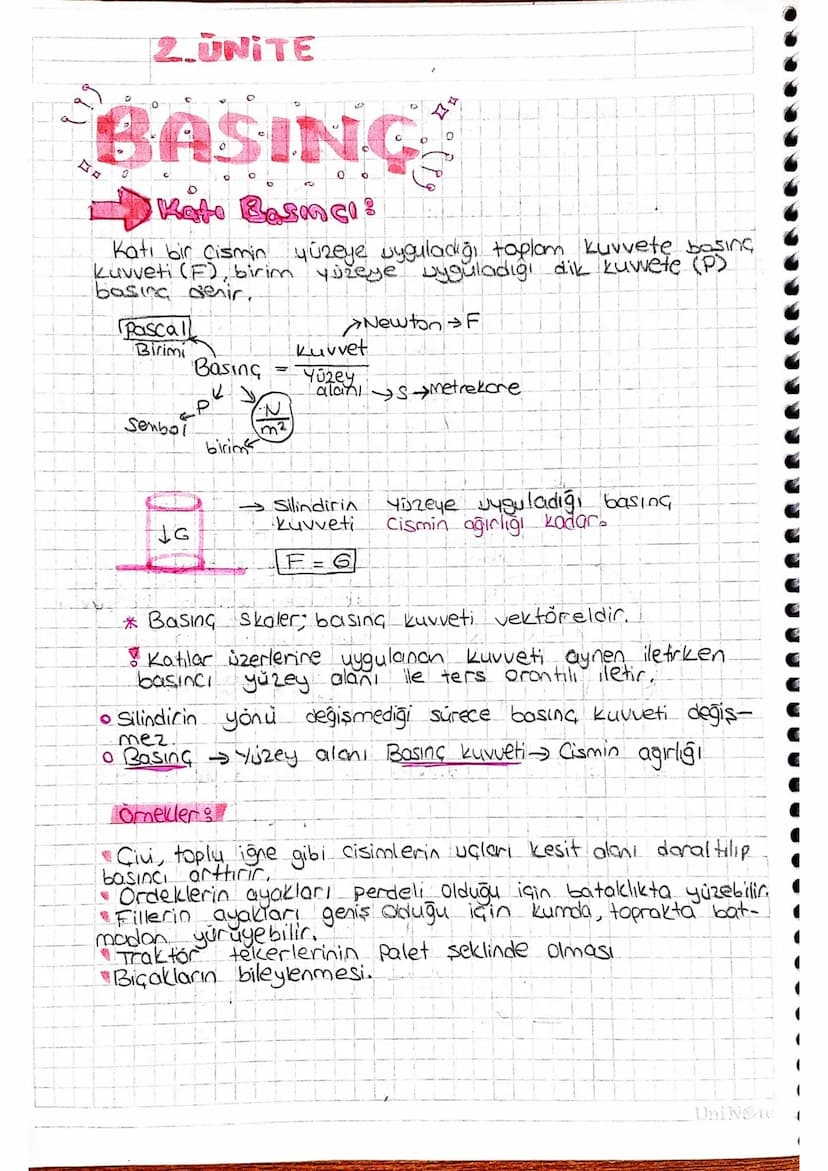 2.ÜNİTE
BASINÇ
Katı Basıncı:
Katı bir cismin yüzeye uyguladığı toplam kuvvete basınç
kuvveti (F), birim yüzeye uyguladığı dik kuvvete (P)
basınç denir.
Newton → F
Pascal
Birimi
Basınç = Kuvvet
Yüzey
alanı → S → metrekare
P
Senbol
N
m²
birim
→ Silindirin yüzeye uyguladığı basınç
kuvveti cismin ağırlığı kadar.
↓G
F = G
* Basınç skaler; basınç kuvveti vektöreldir.
! Katılar üzerlerine uygulanan kuvveti aynen iletirken
basıncı yüzey alanı ile ters orantılı iletir.
Silindirin yönü değişmediği sürece basınç kuvveti değiş-
mez.
Basınç → Yüzey alanı Basınç kuvveti → Cismin ağırlığı
Örnekler:
Çivi, toplu iğne gibi cisimlerin uçları kesit alanı daraltılıp
basıncı arttırır.
Ördeklerin ayakları perdeli olduğu için bataklıkta yüzebilir.
Fillerin ayakları geniş olduğu için kumda, toprakta bat-
madan yürüyebilir.
Traktör tekerlerinin palet şeklinde olması
Bıçakların bileylenmesi.
UniNote